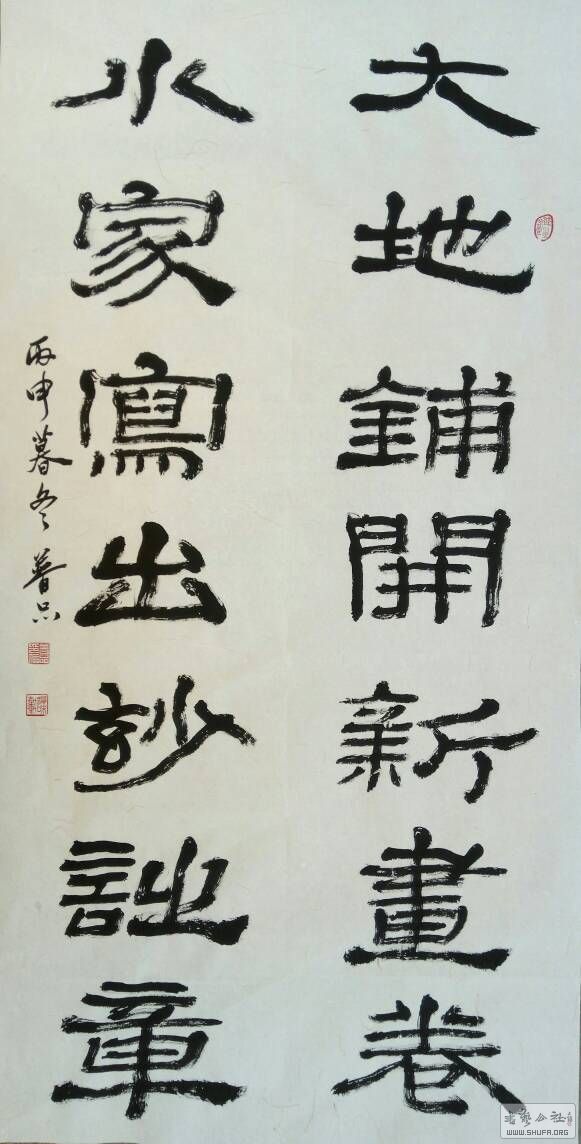 大地鋪開新畫卷
水家寫出玅詩章
丙申暮冬
书艺公社
WWW.SHUFA.ORG